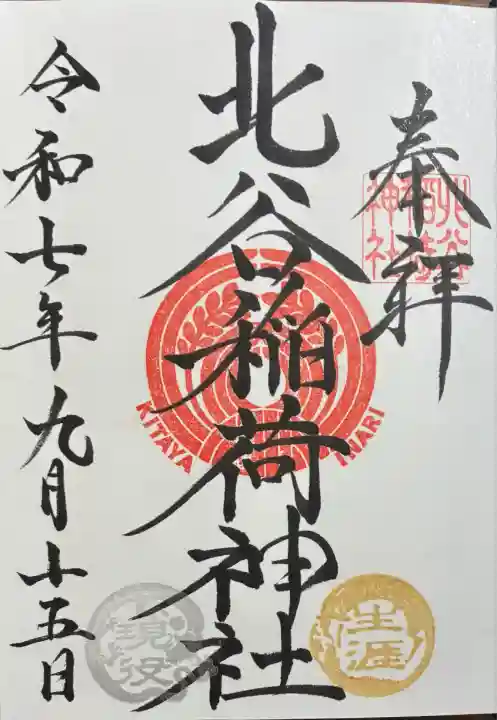 奉拝
北谷稲荷神社
北谷稲荷神社
KITAYA INARI
生涯
現役
令和七年九月十五日